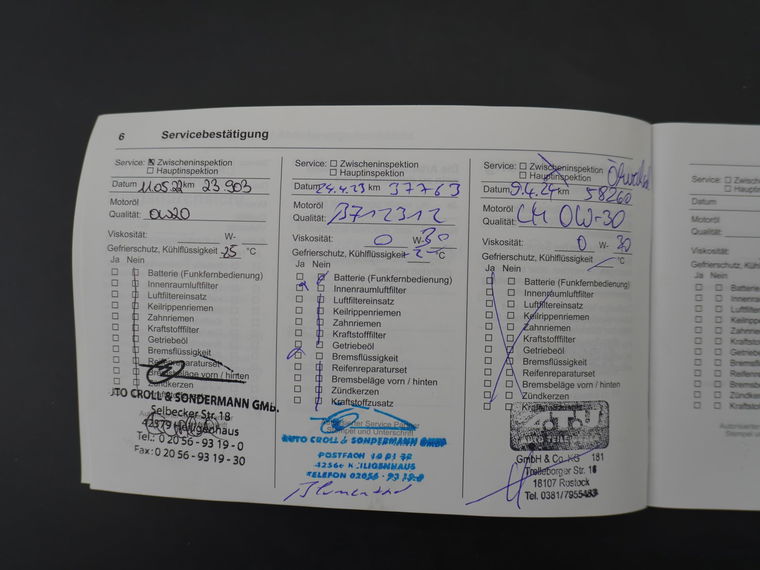 6 Servicebestätigung
Service: Zwischeninspektion
Hauptinspektion
Datum 11.05.22 km 23 903
Motoröl
Qualität: 0W20
Viskosität: W-
Gefrierschutz, Kühlflüssigkeit -25 °C
Ja Nein
Batterie (Funkfernbedienung)
Innenraumluftfilter
Luftfiltereinsatz
Keilrippenriemen
Zahnriemen
Kraftstofffilter
Getriebeöl
Bremsflüssigkeit
Reifenreparaturset
Bremsbeläge vorn / hinten
Zündkerzen
UTO CROLL & SONDERMANN GMb.
Selbecker Str. 18
42579 Heiligenhaus
Tel.: 0 20 56 - 93 19 - 0
Fax: 0 20 56 - 93 19 - 30
Service: Zwischeninspektion
Hauptinspektion
Datum 24.4.23 km 37763
Motoröl
Qualität: B712312
Viskosität: 0 W- 30
Gefrierschutz, Kühlflüssigkeit °C
Ja Nein
Batterie (Funkfernbedienung)
Innenraumluftfilter
Luftfiltereinsatz
Keilrippenriemen
Zahnriemen
Kraftstofffilter
Getriebeöl
Bremsflüssigkeit
Reifenreparaturset
Bremsbeläge vorn / hinten
Zündkerzen
Kraftstoffzusatz
Stempel und Unterschrift
AUTO CROLL & SONDERMANN GMBH
POSTFACH 10 01 72
TELEFON 02056 - 93 19-0
Service: Zwischeninspektion
Hauptinspektion
Datum 9.4.24 km 58260
Motoröl
Qualität: 0W-30
Viskosität: 0 W- 30
Gefrierschutz, Kühlflüssigkeit °C
Ja Nein
Batterie (Funkfernbedienung)
Innenraumluftfilter
Luftfiltereinsatz
Keilrippenriemen
Zahnriemen
Kraftstofffilter
Getriebeöl
Bremsflüssigkeit
Reifenreparaturset
Bremsbeläge vorn / hinten
Zündkerzen
A.T.U
AUTO TEILE
GmbH & Co. KG 181
Trelleborger Str. 16
18107 Rostock
Tel. 0381/7955483
Service: Zwisch
Hauptins
Datum
Motoröl
Qualität:
Viskosität:
Gefrierschutz, Kühlflüs
Ja Nein
Batterie
Innenra
Luftfilte
Keilrippe
Zahnrie
Kraftsto
Getriebe
Bremsfl
Reifenre
Bremsbe
Zündker
Kraftsto
Autorisierter
Stempel un